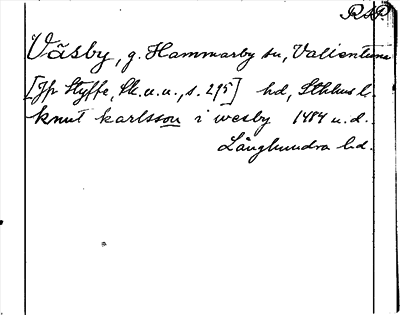 R.A.P.
Väsby, g. Hammarby sn, Vallentuna
[Jfr Styffe, Sk. u. u., s. 295] hd, Sthlms l.
knut karlsson i wesby 1484 u. d.
Långhundra hd.